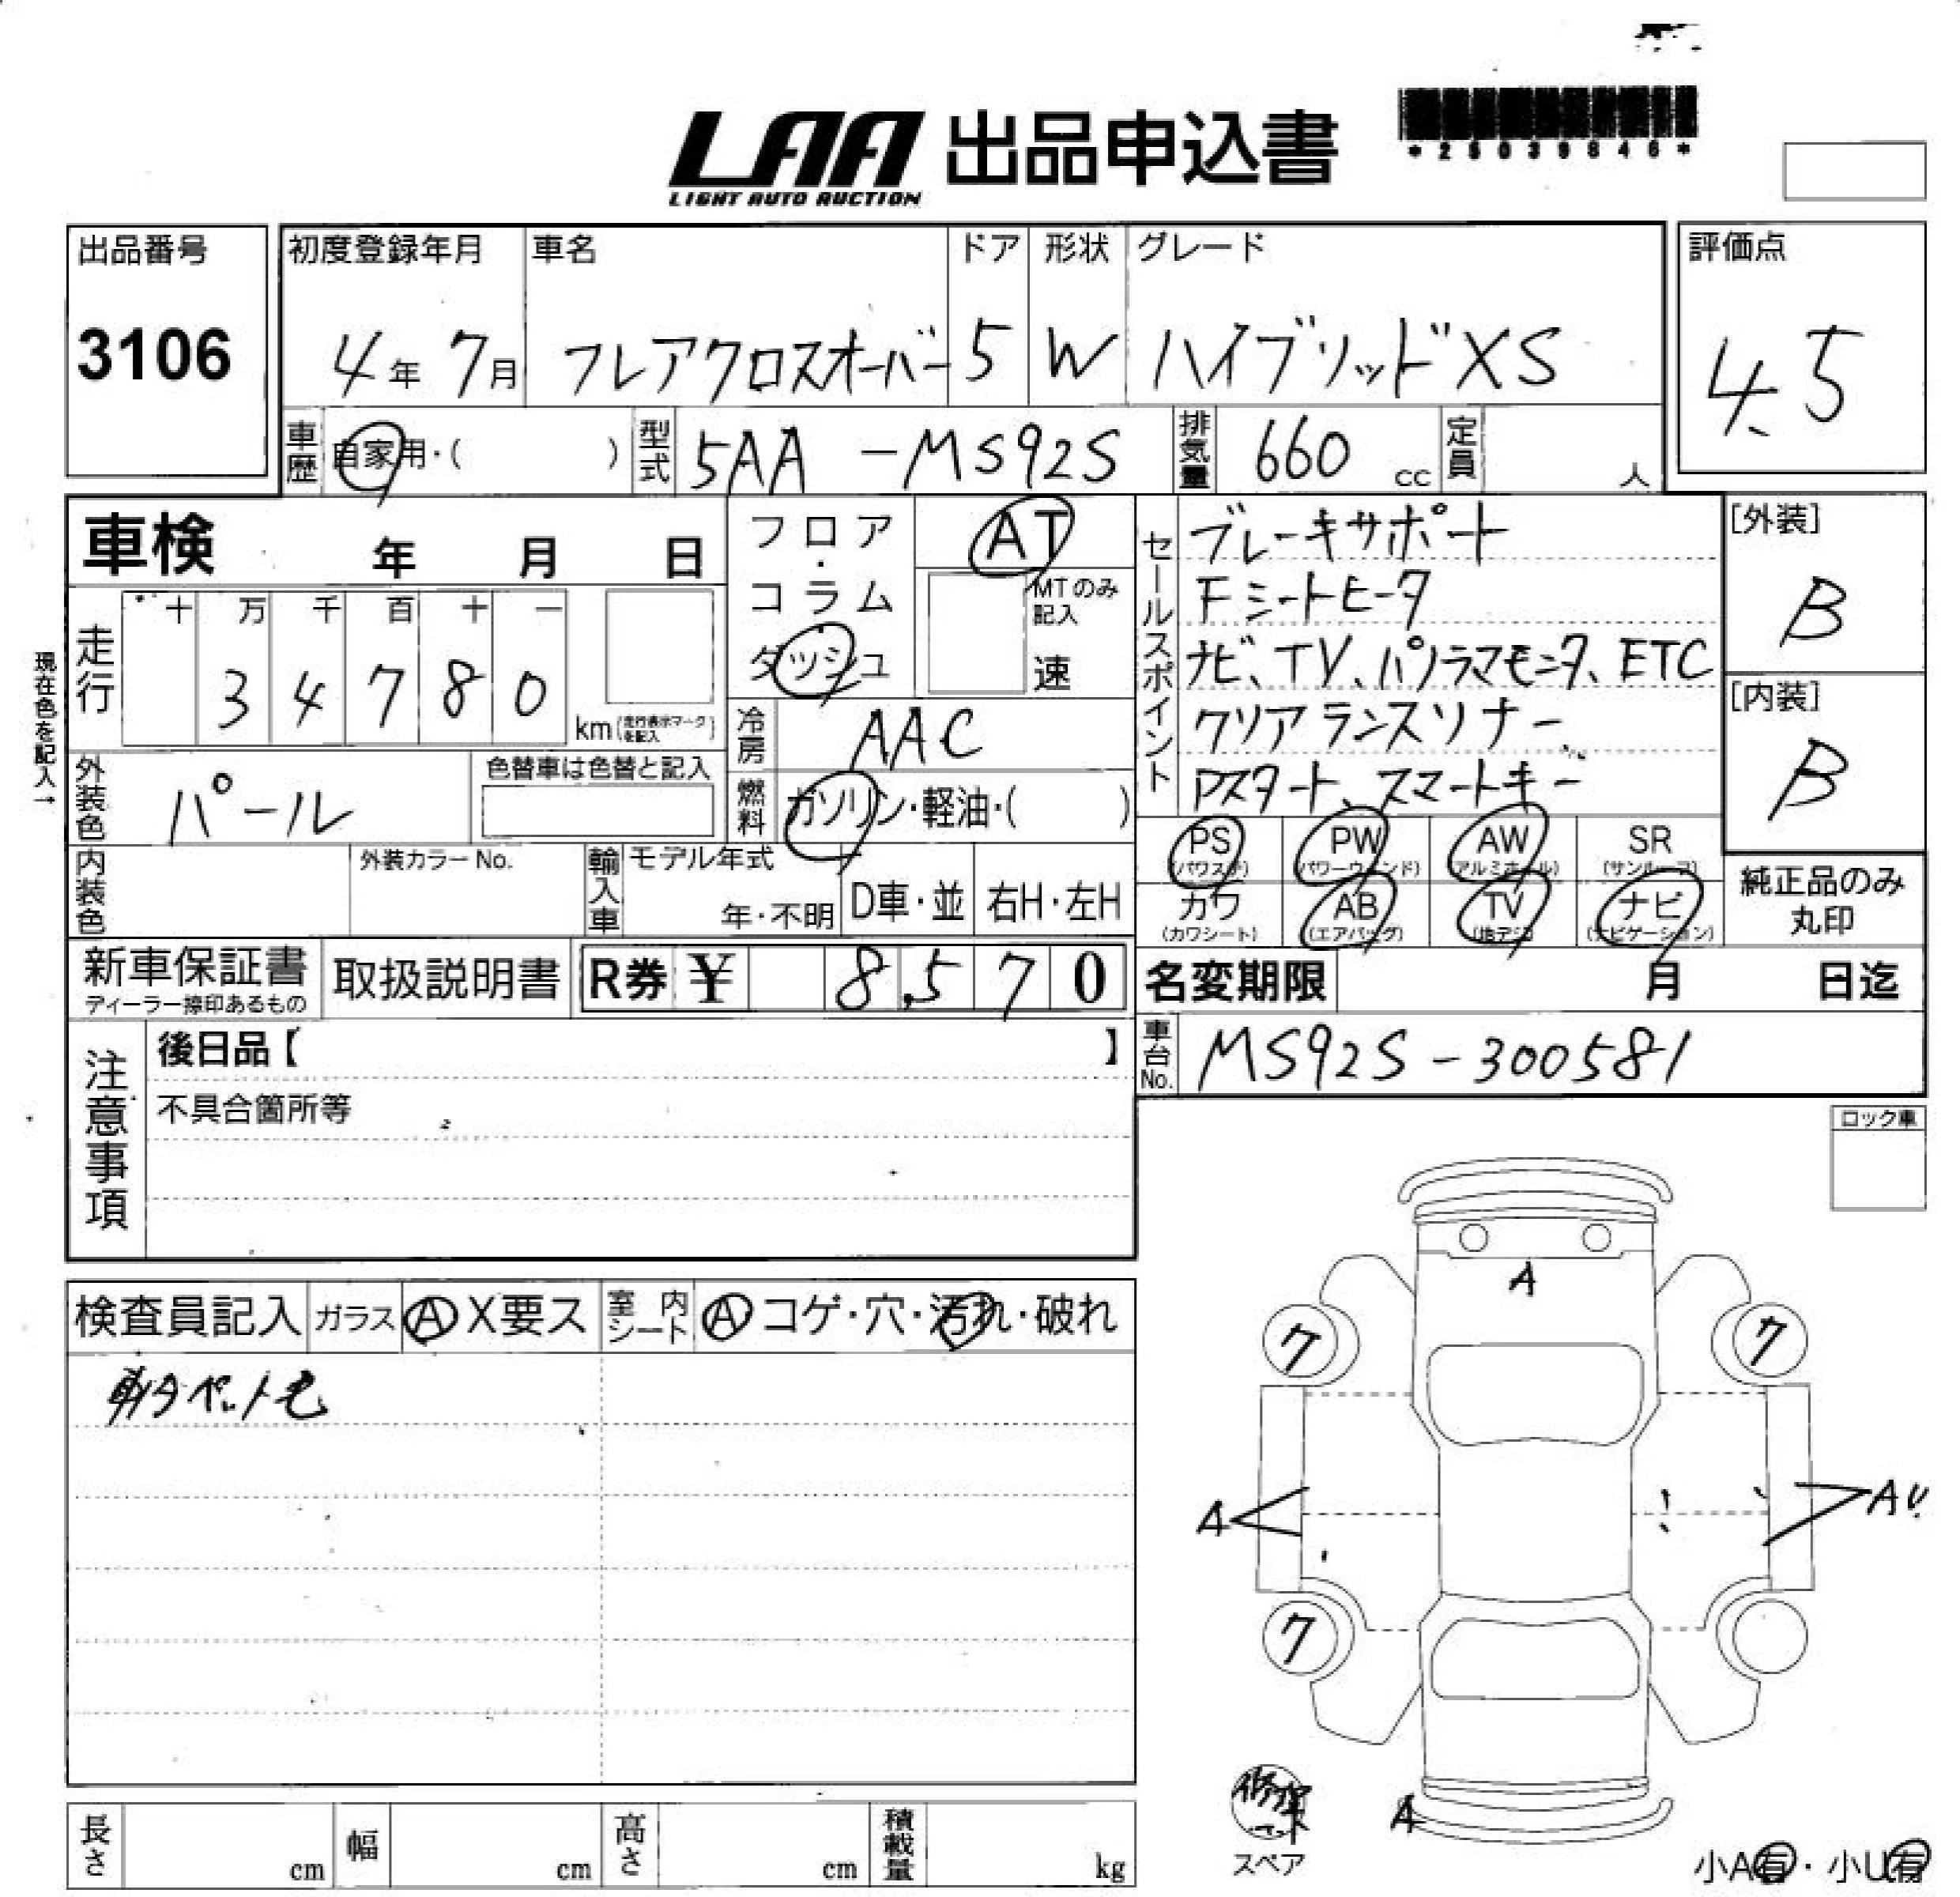 LAA 出品申込書
LIGHT AUTO AUCTION
*25039846*
出品番号
3106
初度登録年月
4年 7月
車名
フレアクロスオーバー
ドア
5
形状
W
グレード
ハイブリッドXS
評価点
4.5
車歴 自家用・( )
型式 5AA -MS92S
排気量 660 cc
定員 人
車検 年 月 日
フロア・コラム・ダッシュ
AT
MTのみ記入
速
現在色を記入→
走行
十 万 千 百 十 一
3 4 7 8 0
km(走行表示マークを記入)
冷房 AAC
燃料 ガソリン・軽油・( )
外装色 パール
色替車は色替と記入
内装色
外装カラー No.
輸入車
モデル年式
年・不明
D車・並
右H・左H
セールスポイント
ブレーキサポート
Fシートヒータ
ナビ、TV、パノラマモニタ、ETC
クリアランスソナー
Pスタート、スマートキー
[外装]
B
[内装]
B
PS (パワステ) PW (パワーウィンド) AW (アルミホイール) SR (サンルーフ)
カワ (カワシート) AB (エアバッグ) TV (地デジ) ナビ (ナビゲーション)
純正品のみ
丸印
新車保証書
ディーラー捺印あるもの
取扱説明書
R券 ¥ 8,570
名変期限 月 日迄
車台No. MS92S-300581
注意事項
後日品【 】
不具合箇所等
ロック車
検査員記入
ガラス A X要ス
室内シート A コゲ・穴・汚れ・破れ
ペット毛
A
7 7
A AU
7
A
修理
キット
スペア
小A有・小U有
長さ cm
幅 cm
高さ cm
積載量 kg